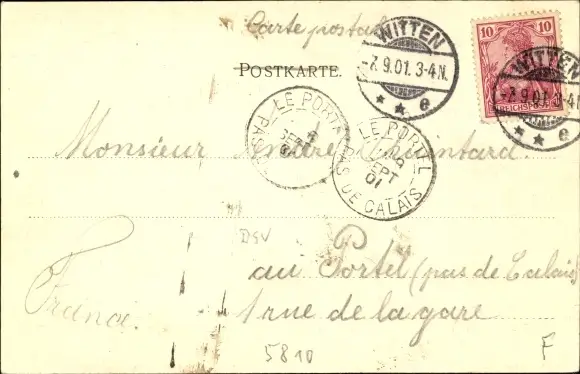 Carte postale
POSTKARTE.
WITTEN
-7.9.01.3-4N.
* * e
10 10
REICHSPOST
WITTEN
-7.9.01.3-4N.
* * e
LE PORTEL
PAS
SEPT
01
LE PORTEL
SEPT
01
PAS DE CALAIS
Monsieur André Quintard.
DSV
au Portel (pas de Calais)
France.
1 rue de la gare
5810
F